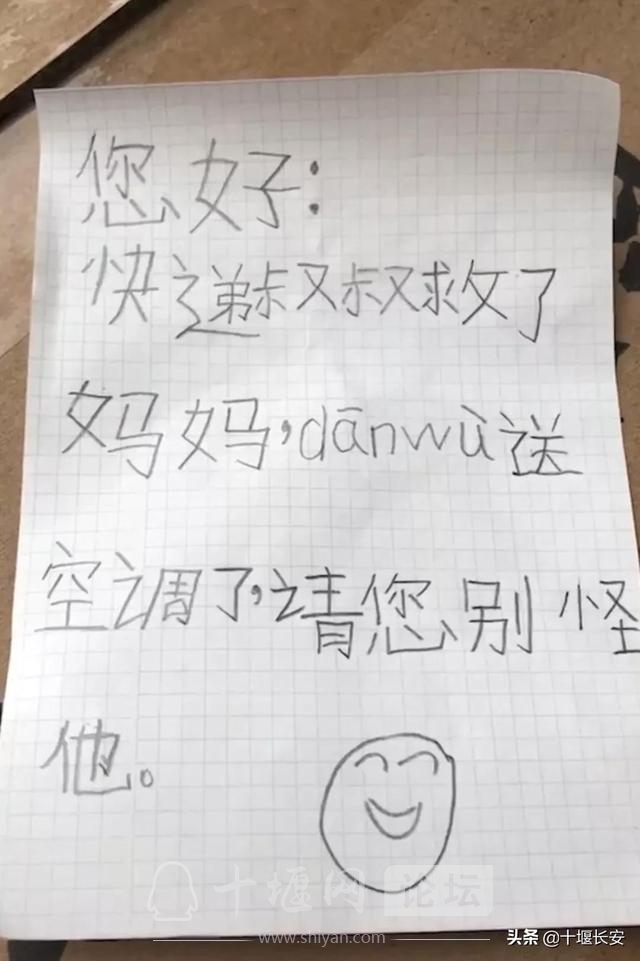 您好：
快递叔叔救了
妈妈，dānwù送
空调了，请您别怪
他。
十堰网 论坛
www.shiyan.com
头条 @十堰长安